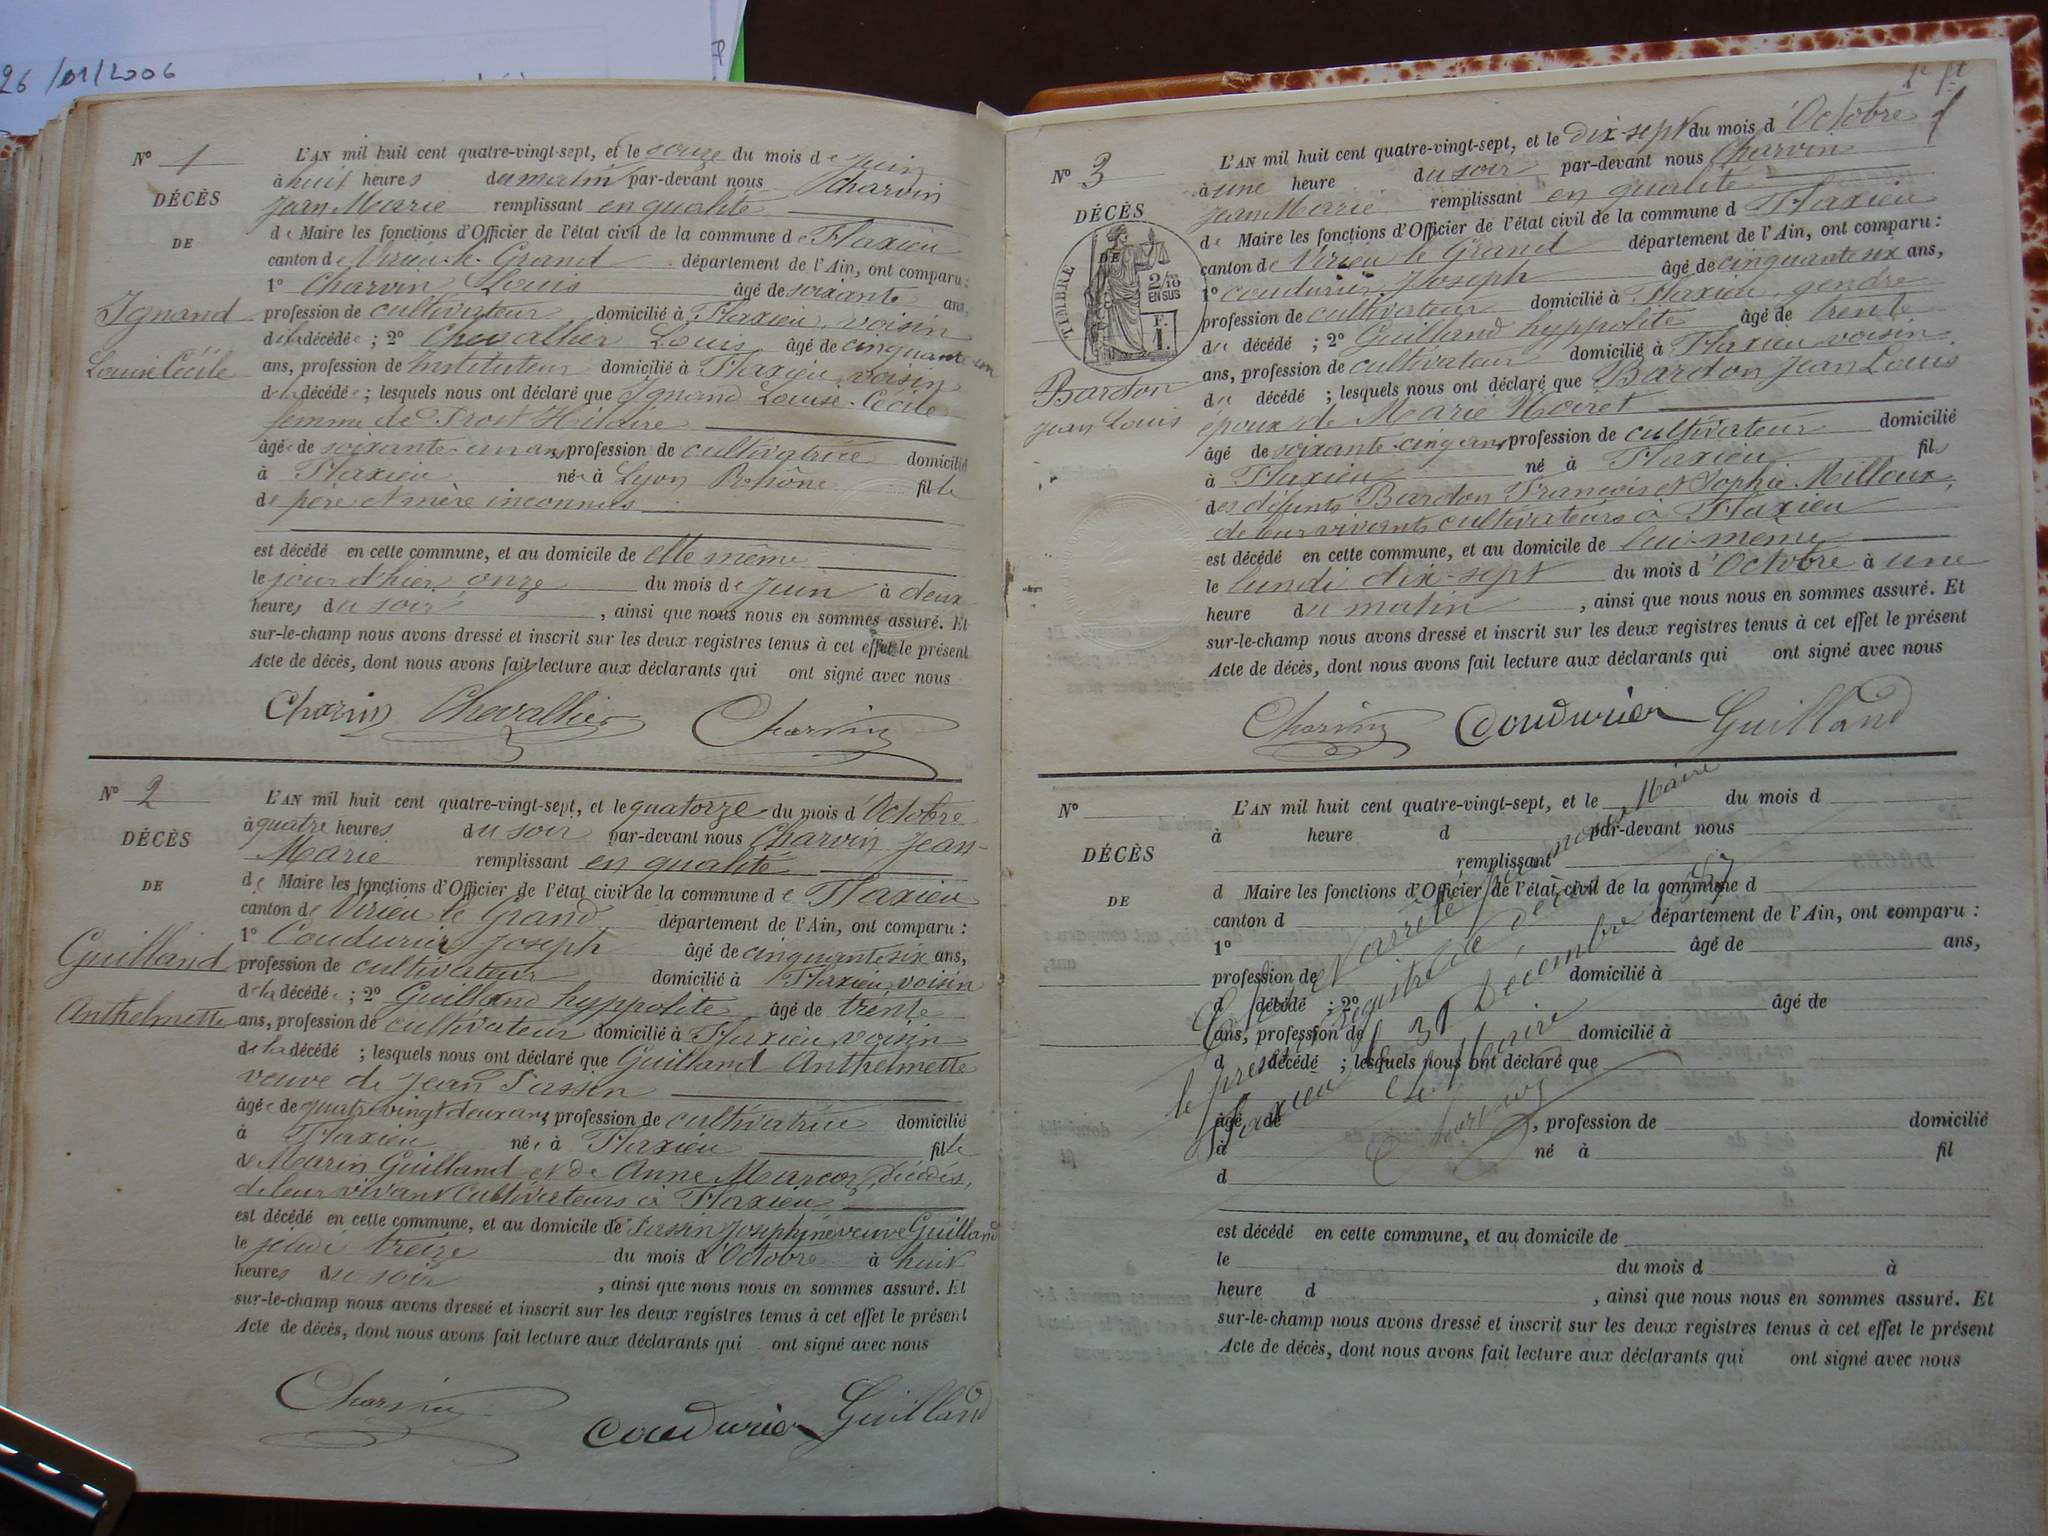 26/01/2006
N° 1
DÉCÈS
DE
Ignand
Louise Cécile
L'AN mil huit cent quatre-vingt-sept, et le douze du mois de Juin
à huit heures du matin par-devant nous Charvin
Jean Marie remplissant en qualité
de Maire les fonctions d'Officier de l'état civil de la commune de Flaxieu
canton de Virieu-le-Grand département de l'Ain, ont comparu :
1° Charvin Louis âgé de soixante ans,
profession de cultivateur domicilié à Flaxieu, voisin
de la décédée ; 2° Chevallier Louis âgé de cinquante un
ans, profession de Instituteur domicilié à Flaxieu, voisin
de la décédée ; lesquels nous ont déclaré que Ignand Louise Cécile
femme de Prost Hilaire
âgée de soixante-un ans, profession de cultivatrice domicilié
à Flaxieu née à Lyon Rhône fille
de père et mère inconnus
est décédé en cette commune, et au domicile de elle même
le jour d'hier onze du mois de Juin à deux
heures du soir, ainsi que nous nous en sommes assuré. Et
sur-le-champ nous avons dressé et inscrit sur les deux registres tenus à cet effet le présent
Acte de décès, dont nous avons fait lecture aux déclarants qui ont signé avec nous
Charvin Chevallier Charvin
N° 2
DÉCÈS
DE
Guilland
Anthelmette
L'AN mil huit cent quatre-vingt-sept, et le quatorze du mois d'Octobre
à quatre heures du soir par-devant nous Charvin Jean-
Marie remplissant en qualité
de Maire les fonctions d'Officier de l'état civil de la commune de Flaxieu
canton de Virieu le Grand département de l'Ain, ont comparu :
1° Coudurier Joseph âgé de cinquante six ans,
profession de cultivateur domicilié à Flaxieu, voisin
de la décédée ; 2° Guilland hyppolite âgé de trente
ans, profession de cultivateur domicilié à Flaxieu, voisin
de la décédé ; lesquels nous ont déclaré que Guilland Anthelmette
veuve de Jean Passin
âgée de quatre vingt deux ans, profession de cultivatrice domicilié
à Flaxieu née à Flaxieu fille
de Marin Guilland et de Anne Marcoz, décédés,
de leur vivant cultivateurs à Flaxieu
est décédé en cette commune, et au domicile de Passin Joséphine veuve Guilland
le jeudi treize du mois d'Octobre à huit
heures du soir, ainsi que nous nous en sommes assuré. Et
sur-le-champ nous avons dressé et inscrit sur les deux registres tenus à cet effet le présent
Acte de décès, dont nous avons fait lecture aux déclarants qui ont signé avec nous
Charvin Coudurier Guilland
N° 3
DÉCÈS
DE
TIMBRE
2/10
EN SUS
F.
1.
Bardon
Jean Louis
L'AN mil huit cent quatre-vingt-sept, et le dix-sept du mois d'Octobre
à une heure du soir par-devant nous Charvin
Jean Marie remplissant en qualité
de Maire les fonctions d'Officier de l'état civil de la commune d Flaxieu
canton de Virieu le Grand département de l'Ain, ont comparu :
1° Coudurier Joseph âgé de cinquante six ans,
profession de cultivateur domicilié à Flaxieu, gendre
du décédé ; 2° Guilland hyppolite âgé de trente
ans, profession de cultivateur domicilié à Flaxieu voisin
du décédé ; lesquels nous ont déclaré que Bardon Jean Louis
époux de Marie Noiret
âgé de soixante-cinq ans, profession de cultivateur domicilié
à Flaxieu né à Flaxieu fils
des défunts Bardon François et Sophie Milloux,
de leur vivants cultivateurs à Flaxieu
est décédé en cette commune, et au domicile de lui-même
le lundi dix-sept du mois d'Octobre à une
heure du matin, ainsi que nous nous en sommes assuré. Et
sur-le-champ nous avons dressé et inscrit sur les deux registres tenus à cet effet le présent
Acte de décès, dont nous avons fait lecture aux déclarants qui ont signé avec nous
Charvin Coudurier Guilland
N°
DÉCÈS
DE
L'AN mil huit cent quatre-vingt-sept, et le du mois d
à heure d par-devant nous
remplissant
d Maire les fonctions d'Officier de l'état civil de la commune d
canton d département de l'Ain, ont comparu :
1° âgé de ans,
profession de domicilié à
d décédé ; 2° âgé de
ans, profession de domicilié à
d décédé ; lesquels nous ont déclaré que
âgé de , profession de domicilié
à né à fil
d
est décédé en cette commune, et au domicile de
le du mois d à
heure d , ainsi que nous nous en sommes assuré. Et
sur-le-champ nous avons dressé et inscrit sur les deux registres tenus à cet effet le présent
Acte de décès, dont nous avons fait lecture aux déclarants qui ont signé avec nous
Clos et arrêté par nous Maire
le présent registre de décès
Flaxieu le 31 Décembre 1887
Le Maire
Charvin